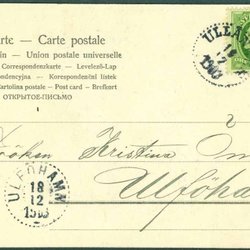 rte — Carte postale
in – Union postale universelle
Correspondenzkarte — Levelező-Lap
ondencyjna — Korespondenční listek
Cartolina postale — Post card — Brefkort
ОТКРЫТОЕ-ПИСЬМО
ULLÅ
18
12
1903
Fröken Kristina
Ulföha
ULFÖHAMM
18
12
1903